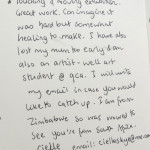 Touching & moving exhibition.
Great work. Can imagine it
was hard but somewhat
healing to make. I have also
lost my mum to early & am
also an artist - well art
student @ qca. I will write
my email in case you would
like to catch up - I am from
Zimbabwe so was moved to
see you're from South Africa.
email: